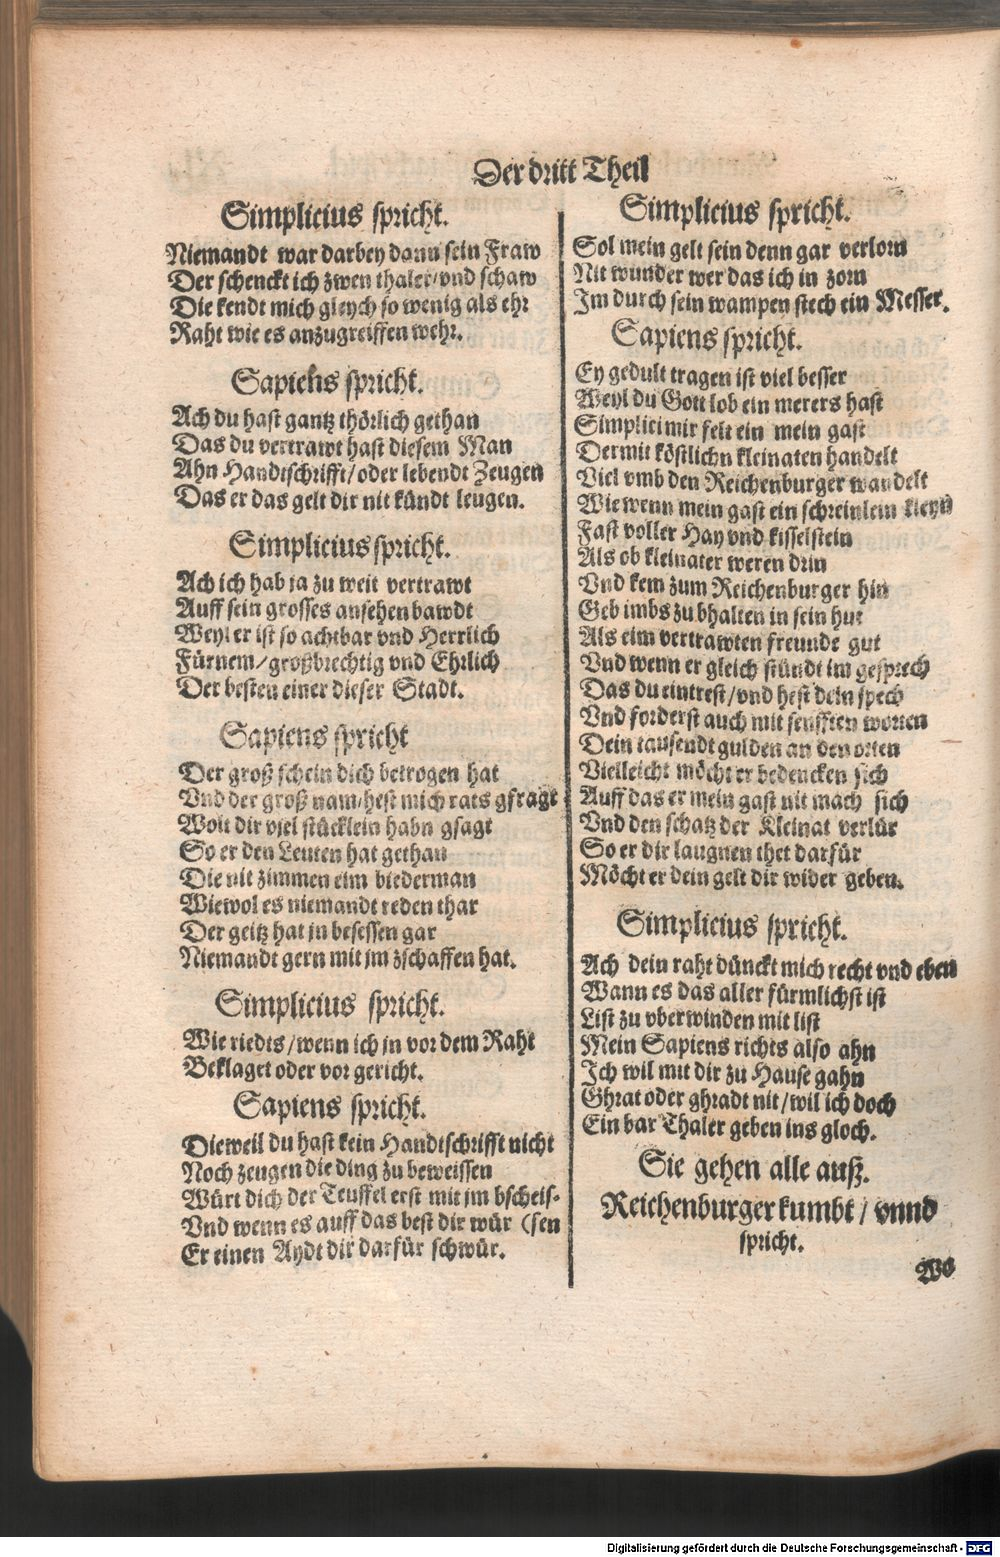 Der dritt Theil
Simplicius spricht.
Niemandt war darbey dann sein Fraw
Der schenckt ich zwen thaler/vnd schaw
Die kendt mich gleych so wenig als ehr
Raht wie es anzugreiffen wehr.
Sapiens spricht.
Ach du hast gantz thörlich gethan
Das du vertrawt hast diesem Man
Ahn Handtschrifft/oder lebendt Zeugen
Das er das gelt dir nit kündt leugen.
Simplicius spricht.
Ach ich hab ja zu weit vertrawt
Auff sein grosses ansehen bawdt
Weyl er ist so achtbar vnd Herrlich
Fürnem/großbrechtig vnd Ehrlich
Der besten einer dieser Stadt.
Sapiens spricht
Der groß schein dich betrogen hat
Vnd der groß nam/hest mich rats gfragt
Wolt dir viel stücklein habn gsagt
So er den Leuten hat gethan
Die nit zimmen eim biederman
Wiewol es niemandt reden thar
Der geitz hat jn besessen gar
Niemandt gern mit jm zschaffen hat.
Simplicius spricht.
Wie riedts/wenn ich jn vor dem Raht
Beklaget oder vor gericht.
Sapiens spricht.
Dieweil du hast kein Handtschrifft nicht
Noch zeugen die ding zu beweissen
Würt dich der Teuffel erst mit jm bscheis-
Vnd wenn es auff das best dir wür (sen
Er einen Aydt dir darfür schwür.
Simplicius spricht.
Sol mein gelt sein denn gar verlorn
Nit wunder wer das ich in zorn
Im durch sein wampen stech ein Messer.
Sapiens spricht.
Ey gedult tragen ist viel besser
Weyl du Gott lob ein merers hast
Simplici mir felt ein mein gast
Der mit köstlichn kleinaten handelt
Viel vmb den Reichenburger wandelt
Wie wenn mein gast ein schreinlein kleyn
Fast voller Hay vnd kisselstein
Als ob kleinater weren drin
Vnd kem zum Reichenburger hin
Geb imbs zu bhalten in sein hut
Als eim vertrawten freunde gut
Vnd wenn er gleich stündt im gesprech
Das du eintrest/vnd hest dein spech
Vnd forderst auch mit senfften worten
Dein tausendt gulden an den orten
Vielleicht möcht er bedencken sich
Auff das er mein gast nit mach sich
Vnd den schatz der Kleinat verlür
So er dir laugnen thet darfür
Möcht er dein gelt dir wider geben.
Simplicius spricht.
Ach dein raht dünckt mich recht vnd eben
Wann es das aller fürmlichst ist
List zu vberwinden mit list
Mein Sapiens richts also ahn
Ich wil mit dir zu Hause gahn
Ghrat oder ghradt nit/wil ich doch
Ein bar Thaler geben ins gloch.
Sie gehen alle auß.
Reichenburger kumbt/vnnd
spricht.
Wo
Digitalisierung gefördert durch die Deutsche Forschungsgemeinschaft - DFG